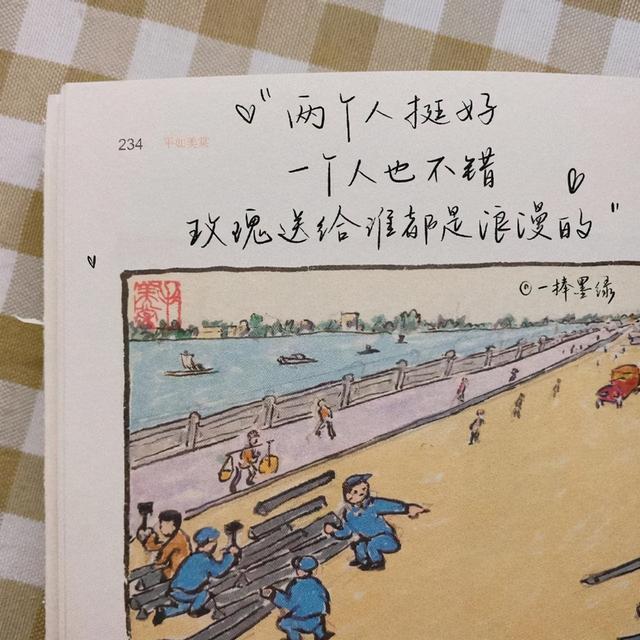 "两个人挺好
234 平如美棠
一个人也不错
玫瑰送给谁都是浪漫的"
@一捧墨绿